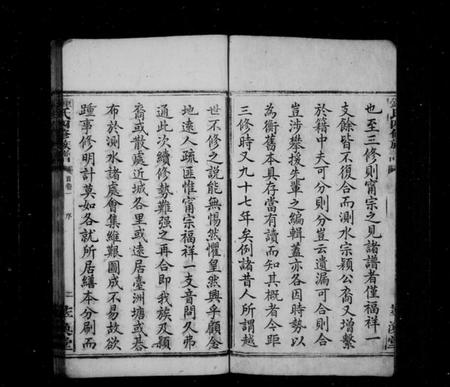 也至三修則甯宗之見諸譜者僅福祥一
支餘皆不復合而測水宗穎公裔又增繫
於籍中夫可分則分豈云遺漏可合則合
豈涉攀援先輩之編輯蓋亦各因時勢以
為衡舊本具存當有讀而知其概者今距
三修時又九十七年矣例諸昔人所謂越
世不修之說能無惕然懼皇然興乎顧念
地遠人疏匪惟甯宗福祥一支音問久弗
通此次續修勢難强之再合即我族及穎
裔或散處近城各里或遠居臺洲塘或碁
布於測水諸處會集維艱圖成不易故欲
踵事修明計莫如各就所居繕本分刷而
氏四修族譜
卷首一
序
二